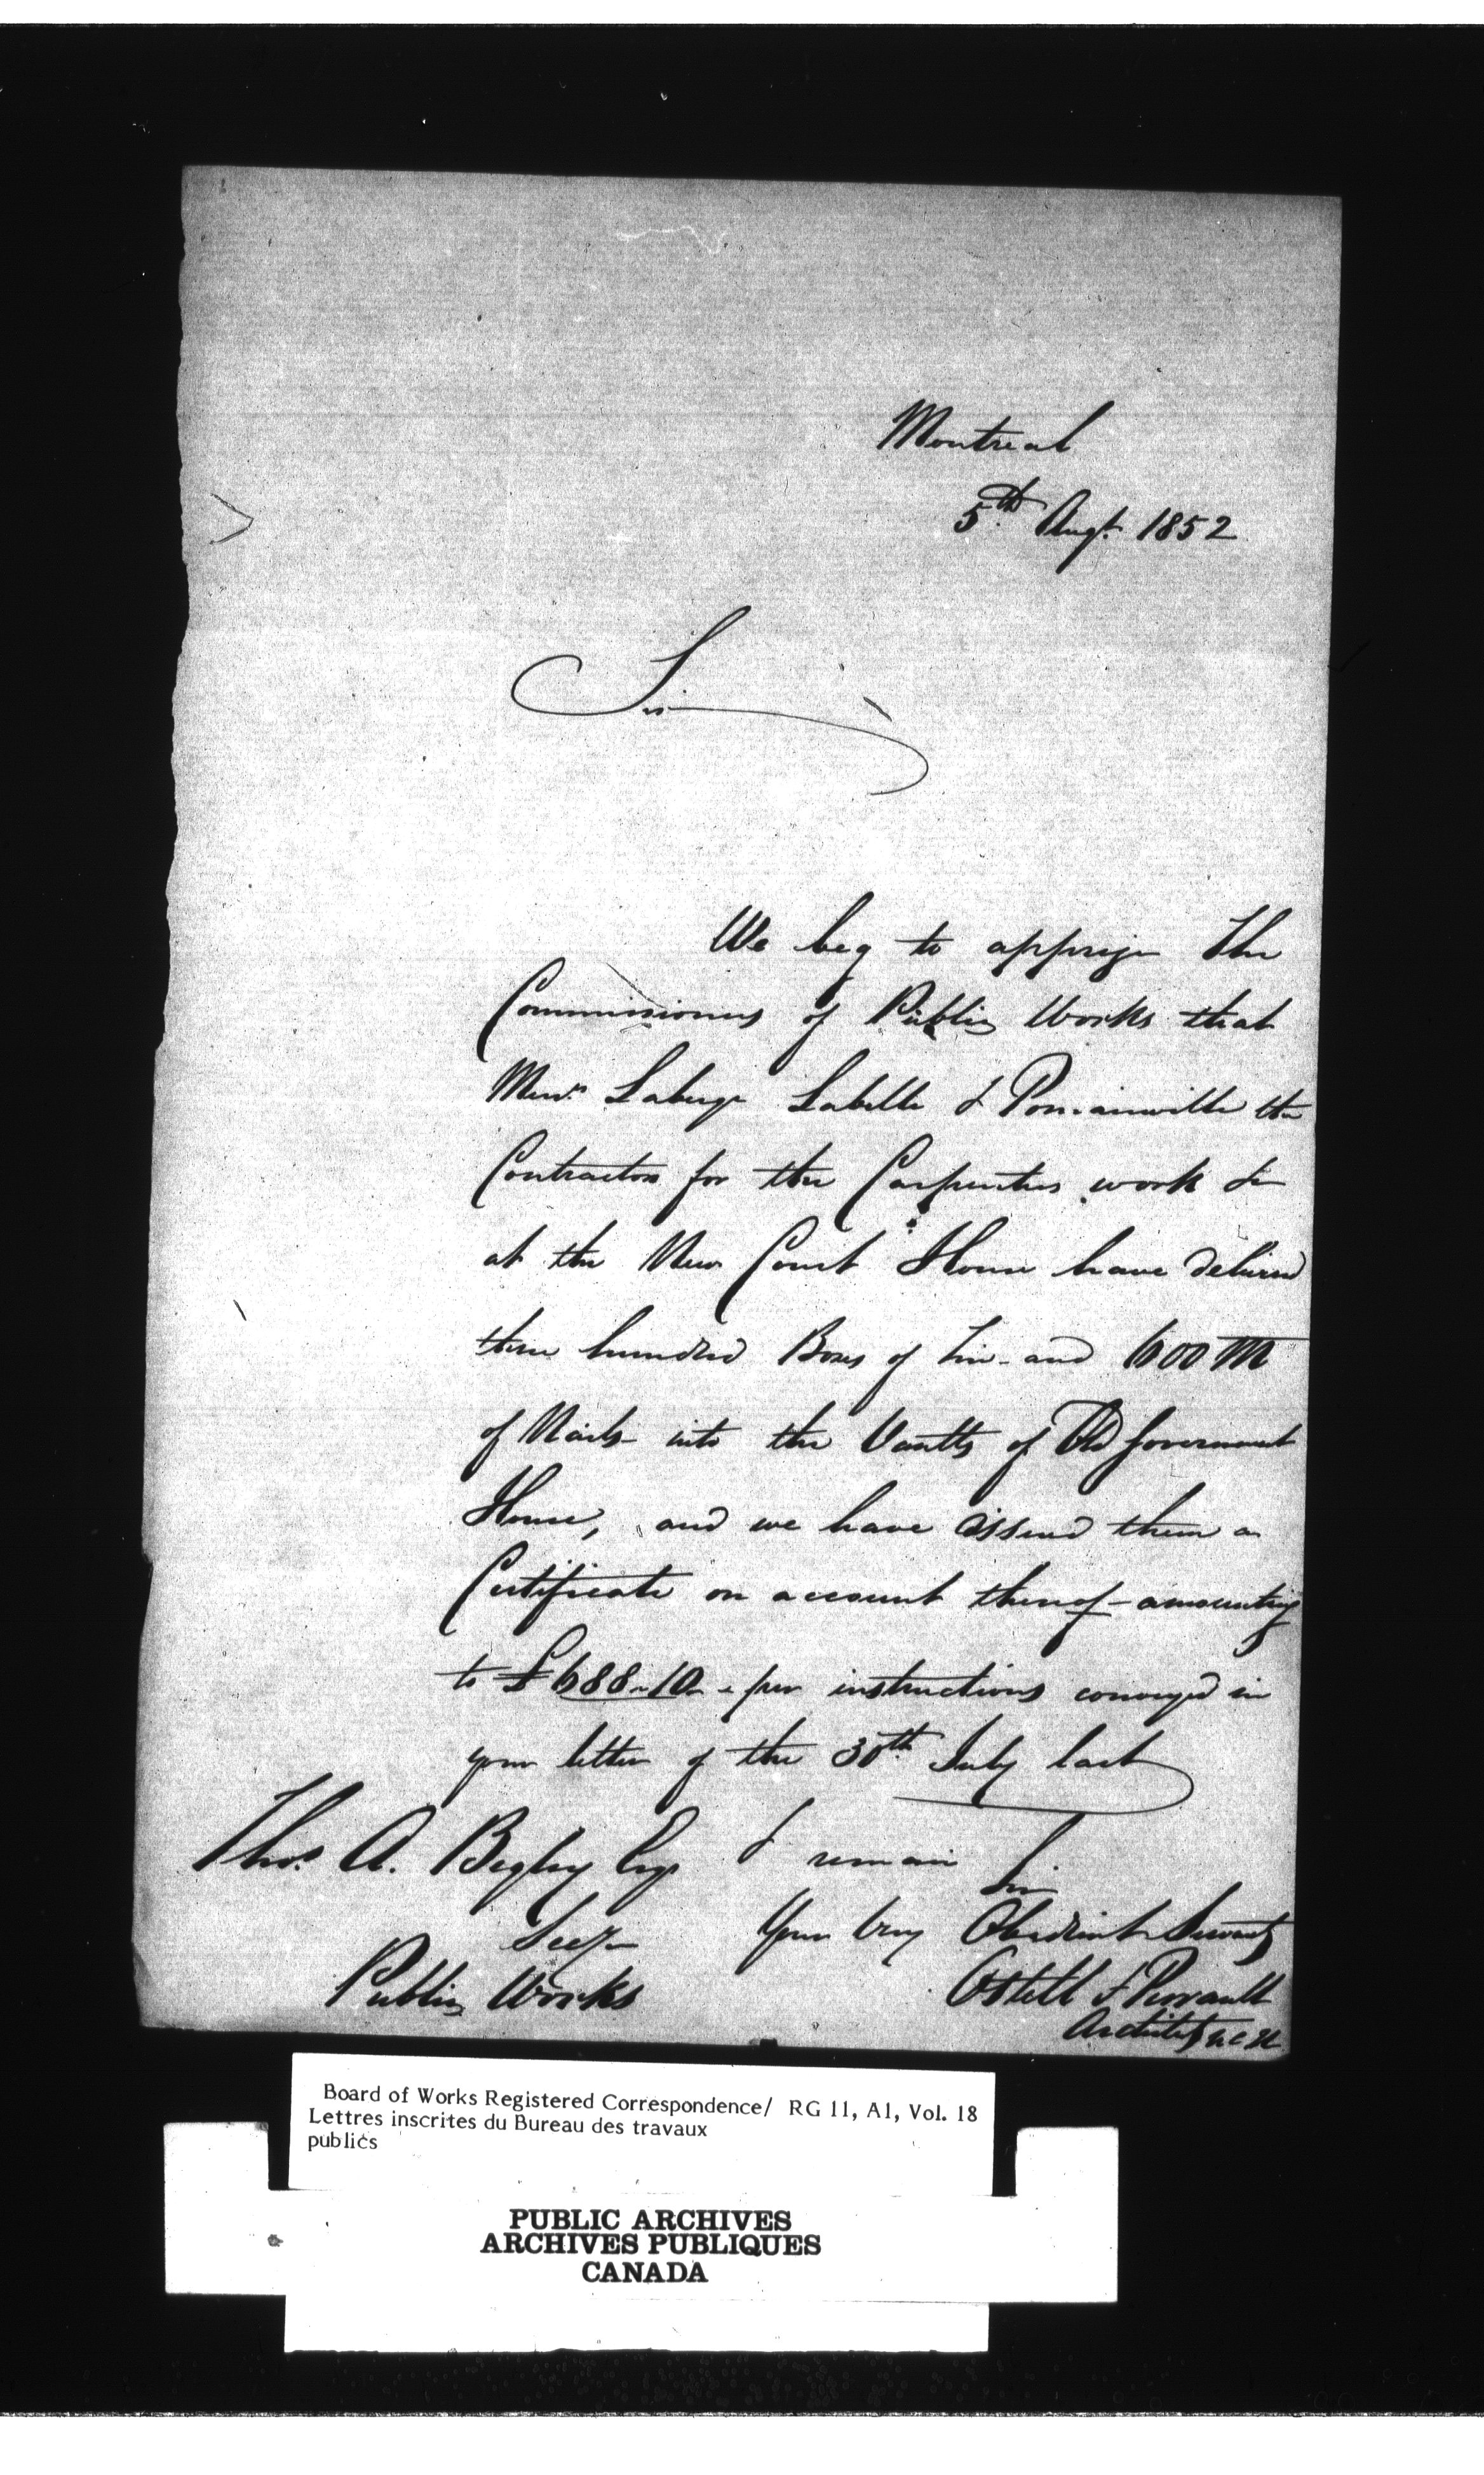 Montreal
5th Augt. 1852
Sir
We beg to apprize the
Commissioners of Public Works that
Messrs. Laberge Labelle & Ponsainville the
Contractors for the Carpenters work &c
at the New Court House have delivered
three hundred Boxes of Tin and 600 M
of Nails into the Vaults of Old Government
House, and we have issued them a
Certificate on account thereof amounting
to £688-10- per instructions conveyed in
your letter of the 30th July last
Thos. A. Begley Esqr I remain Sir
Secy Your very Obedient Servants
Public Works Ostell & Perrault
Architects N.C.H.
Board of Works Registered Correspondence/ RG 11, A1, Vol. 18
Lettres inscrites du Bureau des travaux
publics
PUBLIC ARCHIVES
ARCHIVES PUBLIQUES
CANADA